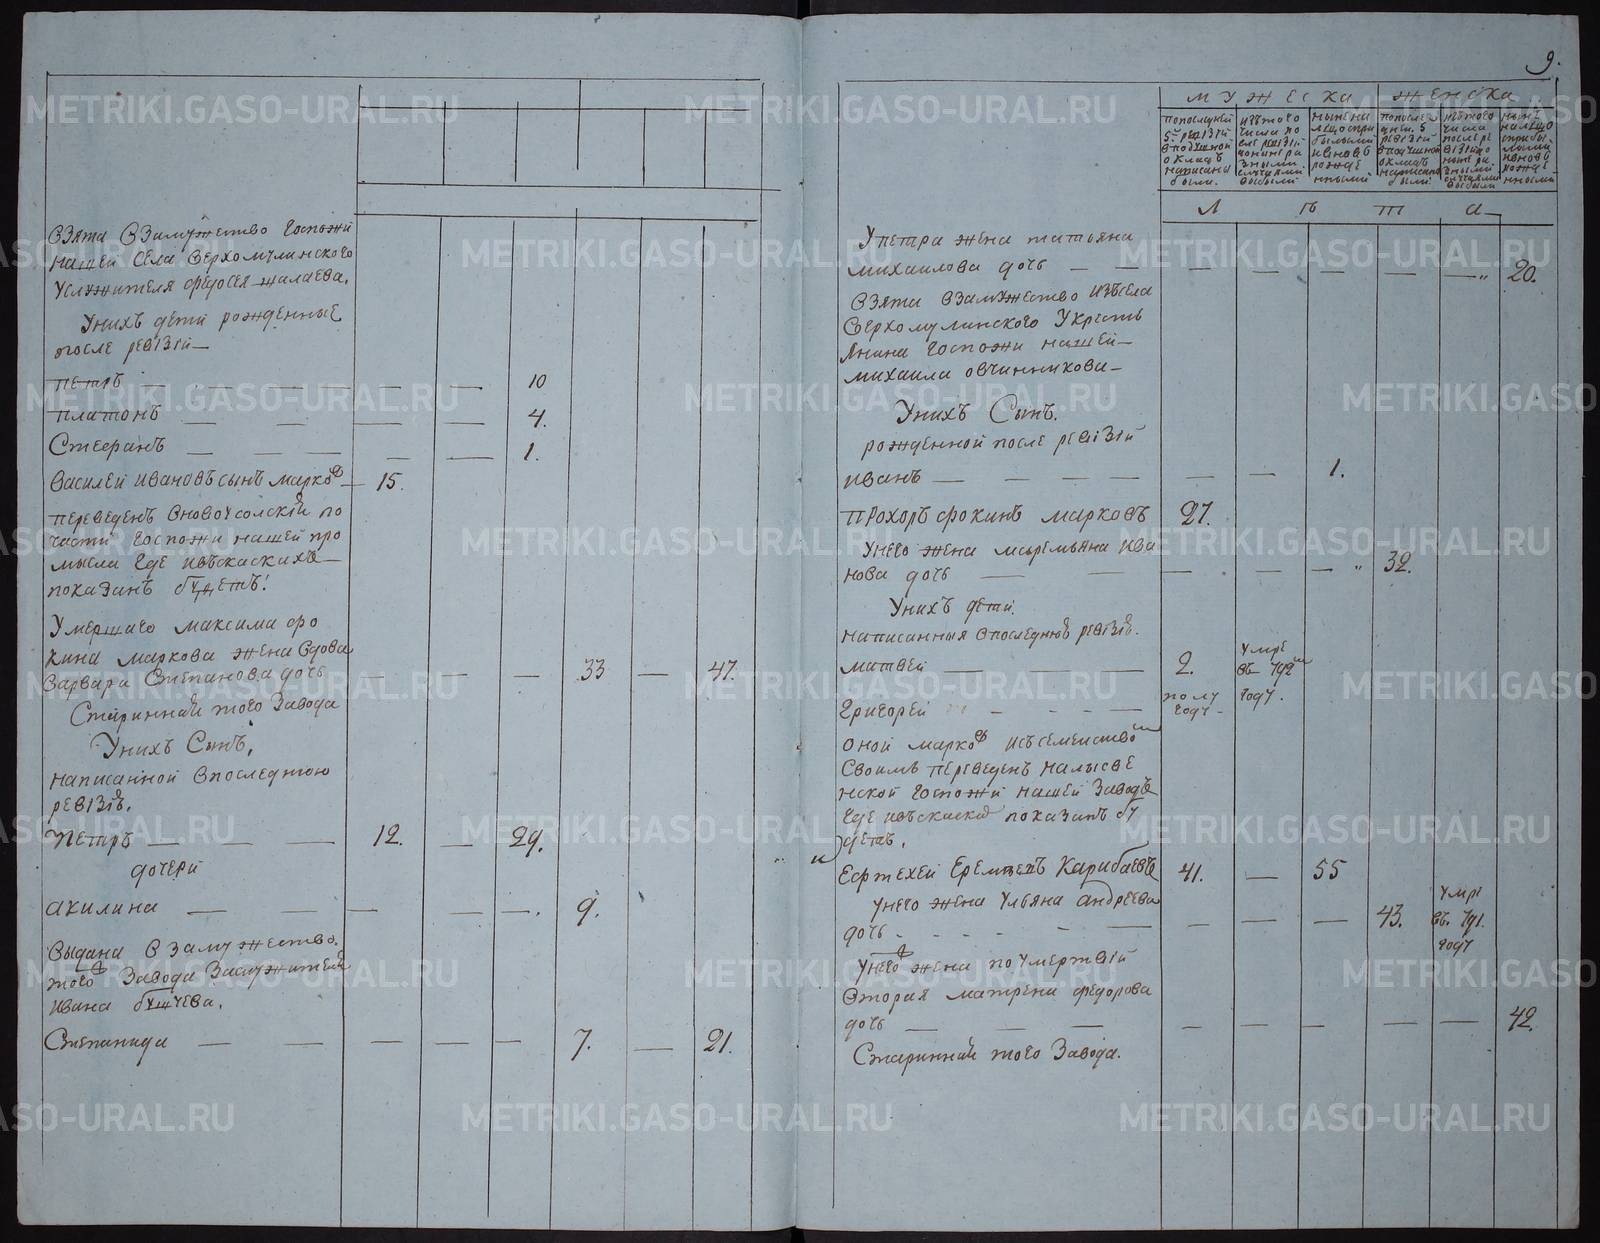 взята взамужество госпожи
нашей села верхомулинского
услужителя федосея жалаева.
Унихъ дети рожденные
после ревiзiи —
петръ — — — — — 10
платонъ — — — — 4.
Стефанъ — — — — 1.
василей ивановъ сынъ марковъ — 15.
переведенъ вновоусолскiй по
части госпожи нашей про
мысла где ивъскаскихъ —
показанъ будетъ!
Умершаго максима фо
кина маркова жена вдова
Варвара Степанова дочь — — — 33 — 47.
Стариннай того завода
Унихъ Сынъ,
написанной впоследнюю
ревiзiю.
Петръ — — — 12. — 29.
дочери
акилина — — — — — 9.
выдана взамужество.
того завода заслужителя
ивана бушуева.
Степанида — — — — — 7. — 21.
9.
мужеска женска
попоследней
5й ревiзiи
вподушной
окладъ
написано
были.
изътого
числа по
сле ревiзiи
разными
случаями
выбыли
ныне на
лицо
прибылыми
иновъ
рожде
нными
попосле
дней 5
ревiзiи
вподушной
окладъ
написано
были
изътого
числа
после ре
вiзiи
разными
случаями
выбыли
ныне
налицо
прибы
лыми
иновъ
рожде
нными
л ѣ т а
Упетра жена татьяна
михаилова дочь — — — — — — — 20.
взята взамужество изъсела
верхомулинского Укресть
янина госпожи нашей —
михаила овчинникова —
Унихъ Сынъ.
рожденной после ревiзiи
иванъ — — — — — — 1.
прохоръ фокинъ марковъ 27.
Унего жена маремьяна ива
нова дочь — — — — — 32.
Унихъ дети.
написанныя впоследнюю ревiзiю.
матвей — — — 2. умре
въ 792м
году.
григорей — — — полу
году —
оной марковъ исъсемействомъ
Своимъ переведенъ налысве
нской госпожи нашей заводъ
где ивъскаске показанъ бу
детъ.
Ефтехей Еремеевъ Карибаевъ 41. — 55
Унего жена Ульяна андреева
дочь — — — — — — — 43. умре
въ. 791.
году
Унего жена поумертвiй
вторая матрена федорова
дочь — — — — — — — — 42.
Стариннай того завода.
METRIKI.GASO-URAL.RU